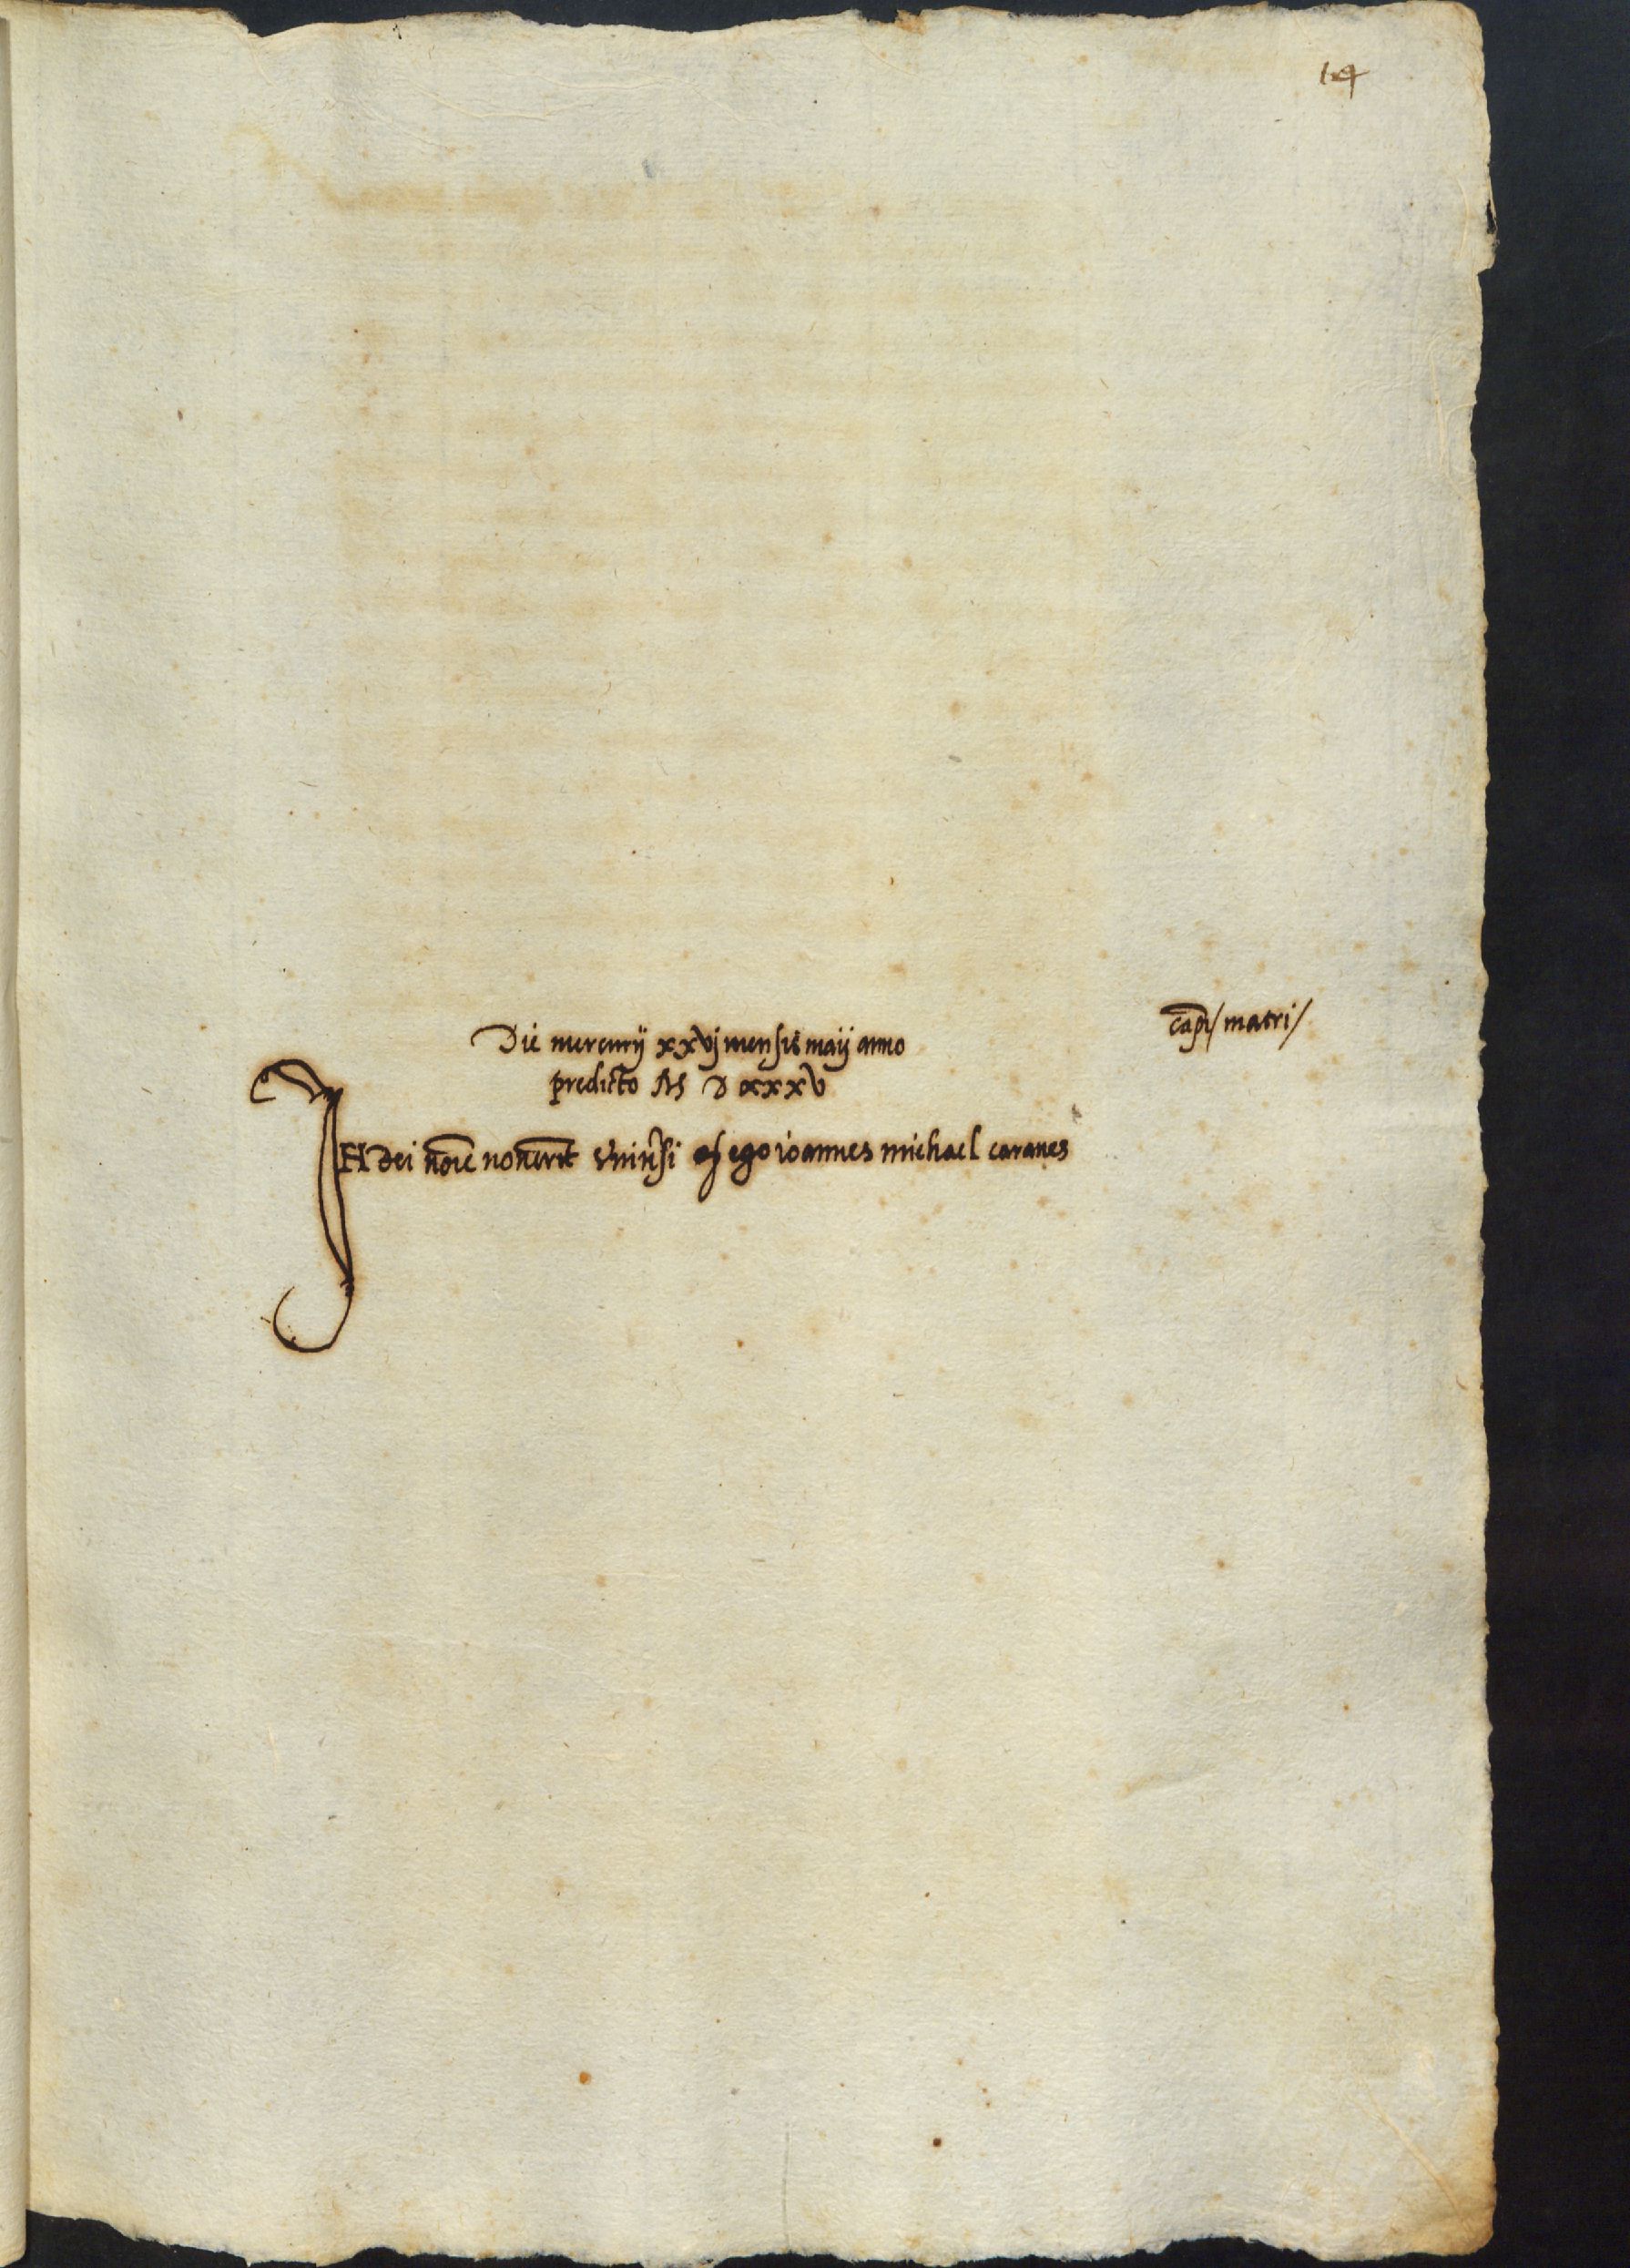 14
capi/ matri/
Die mercurij xxvj mensis maij anno
predicto M D xxxv
IN Dei noīe nouerīt vniūsi q ego ioannes michael caranes